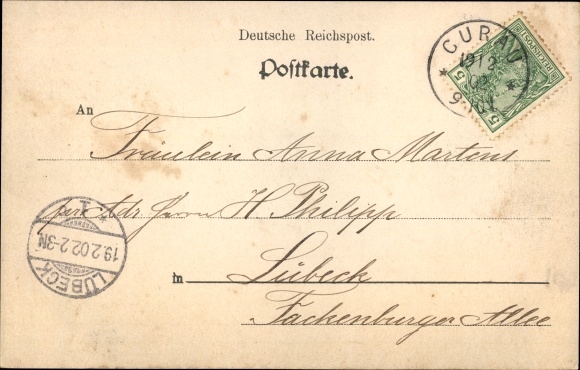 Deutsche Reichspost.
Postkarte.
CURAU
19 12
02
9-10V
REICHSPOST
5 5
An Fräulein Anna Martens
per Adr Herrn H Philipp
in Lübeck
Fackenburger Allee
LÜBECK
19.2.02.2-3N
1